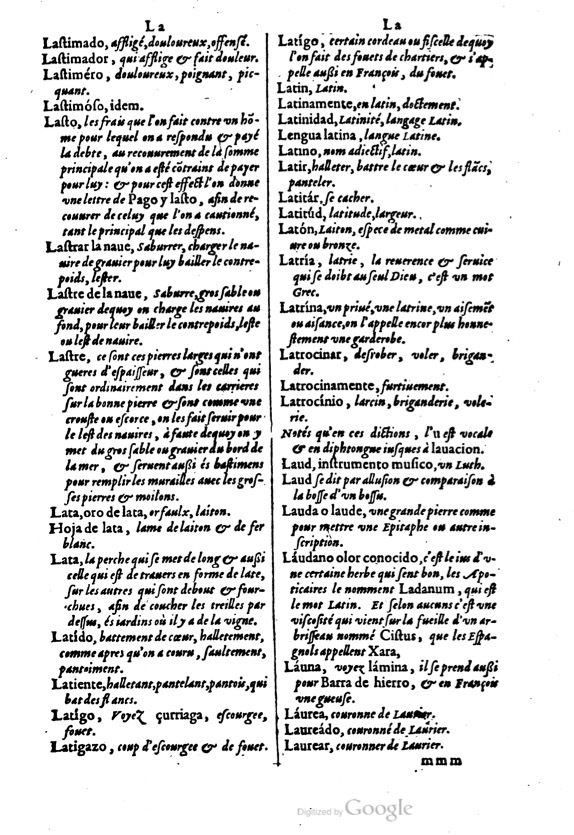 La
Lastimado, affligé, douloureux, offensé.
Lastimador, qui afflige & fait douleur.
Lastiméro, douloureux, poignant, pic-
quant.
Lastimóso, idem.
Lasto, les frais que l'on fait contre vn hõ-
me pour lequel on a respondu & payé
la debte, au recouurement de la somme
principale qu'on a esté cõtraint de payer
pour luy: & pour cest effect l'on donne
vne lettre de Pago y lasto, afin de re-
couurer de celuy que l'on a cautionné,
tant le principal que les despens.
Lastrar la naue, Saburrer, charger le na-
uire de grauier pour luy bailler le contre-
poids, lester.
Lastre de la naue, Saburre, gros sable ou
grauier dequoy on charge les nauires au
fond, pour leur bailler le contrepoids, leste
ou lest de nauire.
Lastre, ce sont ces pierres larges qui n'ont
gueres d'espaisseur, & sont celles qui
sont ordinairement dans les carrieres
sur la bonne pierre & sont comme vne
crouste ou escorce, on les fait seruir pour
le lest des nauires, à faute dequoy on y
met du gros sable ou grauier du bord de
la mer, & seruent außi és bastimens
pour remplir les murailles auec les gros-
ses pierres & moilons.
Lata, oro de lata, or faulx, laiton.
Hoja de lata, lame de laiton & de fer
blanc.
Lata, la perche qui se met de long & außi
celle qui est de trauers en forme de late,
sur les autres qui sont debout & four-
chues, afin de coucher les treilles par
dessus, és iardins où il y a de la vigne.
Latído, battement de cœur, halletement,
comme apres qu'on a couru, saultement,
pantoiment.
Latiente, halletant, pantelant, pantois, qui
bat des flancs.
Latigo, Voyez çurriaga, escourgee,
fouet.
Latigazo, coup d'escourgee & de fouet.
La
Latígo, certain cordeau ou fiscelle dequoy
l'on fait des fouets de chartiers, & s'ap-
pelle außi en François, du fouet.
Latin, Latin.
Latinamente, en latin, doctement.
Latinidad, Latinité, langage Latin.
Lengua latina, langue Latine.
Latino, nom adiectif, latin.
Latir, halleter, battre le cœur & les flãcs,
panteler.
Latitár, se cacher.
Latitúd, latitude, largeur.
Latón, Laiton, espece de metal comme cui-
ure ou bronze.
Latría, latrie, la reuerence & seruice
qui se doibt au seul Dieu, c'est vn mot
Grec.
Latrina, vn priué, vne latrine, vn aisemẽt
ou aisance, on l'appelle encor plus honne-
stement vne garderobe.
Latrocinar, desrober, voler, brigan-
der.
Latrocinamente, furtiuement.
Latrocínio, larcin, briganderie, vole-
rie.
Notés qu'en ces dictions, l'u est vocale
& en diphtongue iusques à lauacion.
Laud, instrumento musico, vn Luth.
Laud se dit par allusion & comparaison à
la bosse d'vn bossu.
Lauda o laude, vne grande pierre comme
pour mettre vne Epitaphe ou autre in-
scription.
Láudano olor conocido, c'est le ius d'v-
ne certaine herbe qui sent bon, les Apo-
ticaires le nomment Ladanum, qui est
le mot Latin. Et selon aucuns c'est vne
viscosité qui vient sur la fueille d'vn ar-
brisseau nommé Cistus, que les Espa-
gnols appellent Xara,
Láuna, voyez lámina, il se prend außi
pour Barra de hierro, & en François
vne gueuse.
Láurea, couronne de Laurier.
Laureádo, couronné de Laurier.
Laurear, couronner de Laurier.
mmm
Digitized by Google